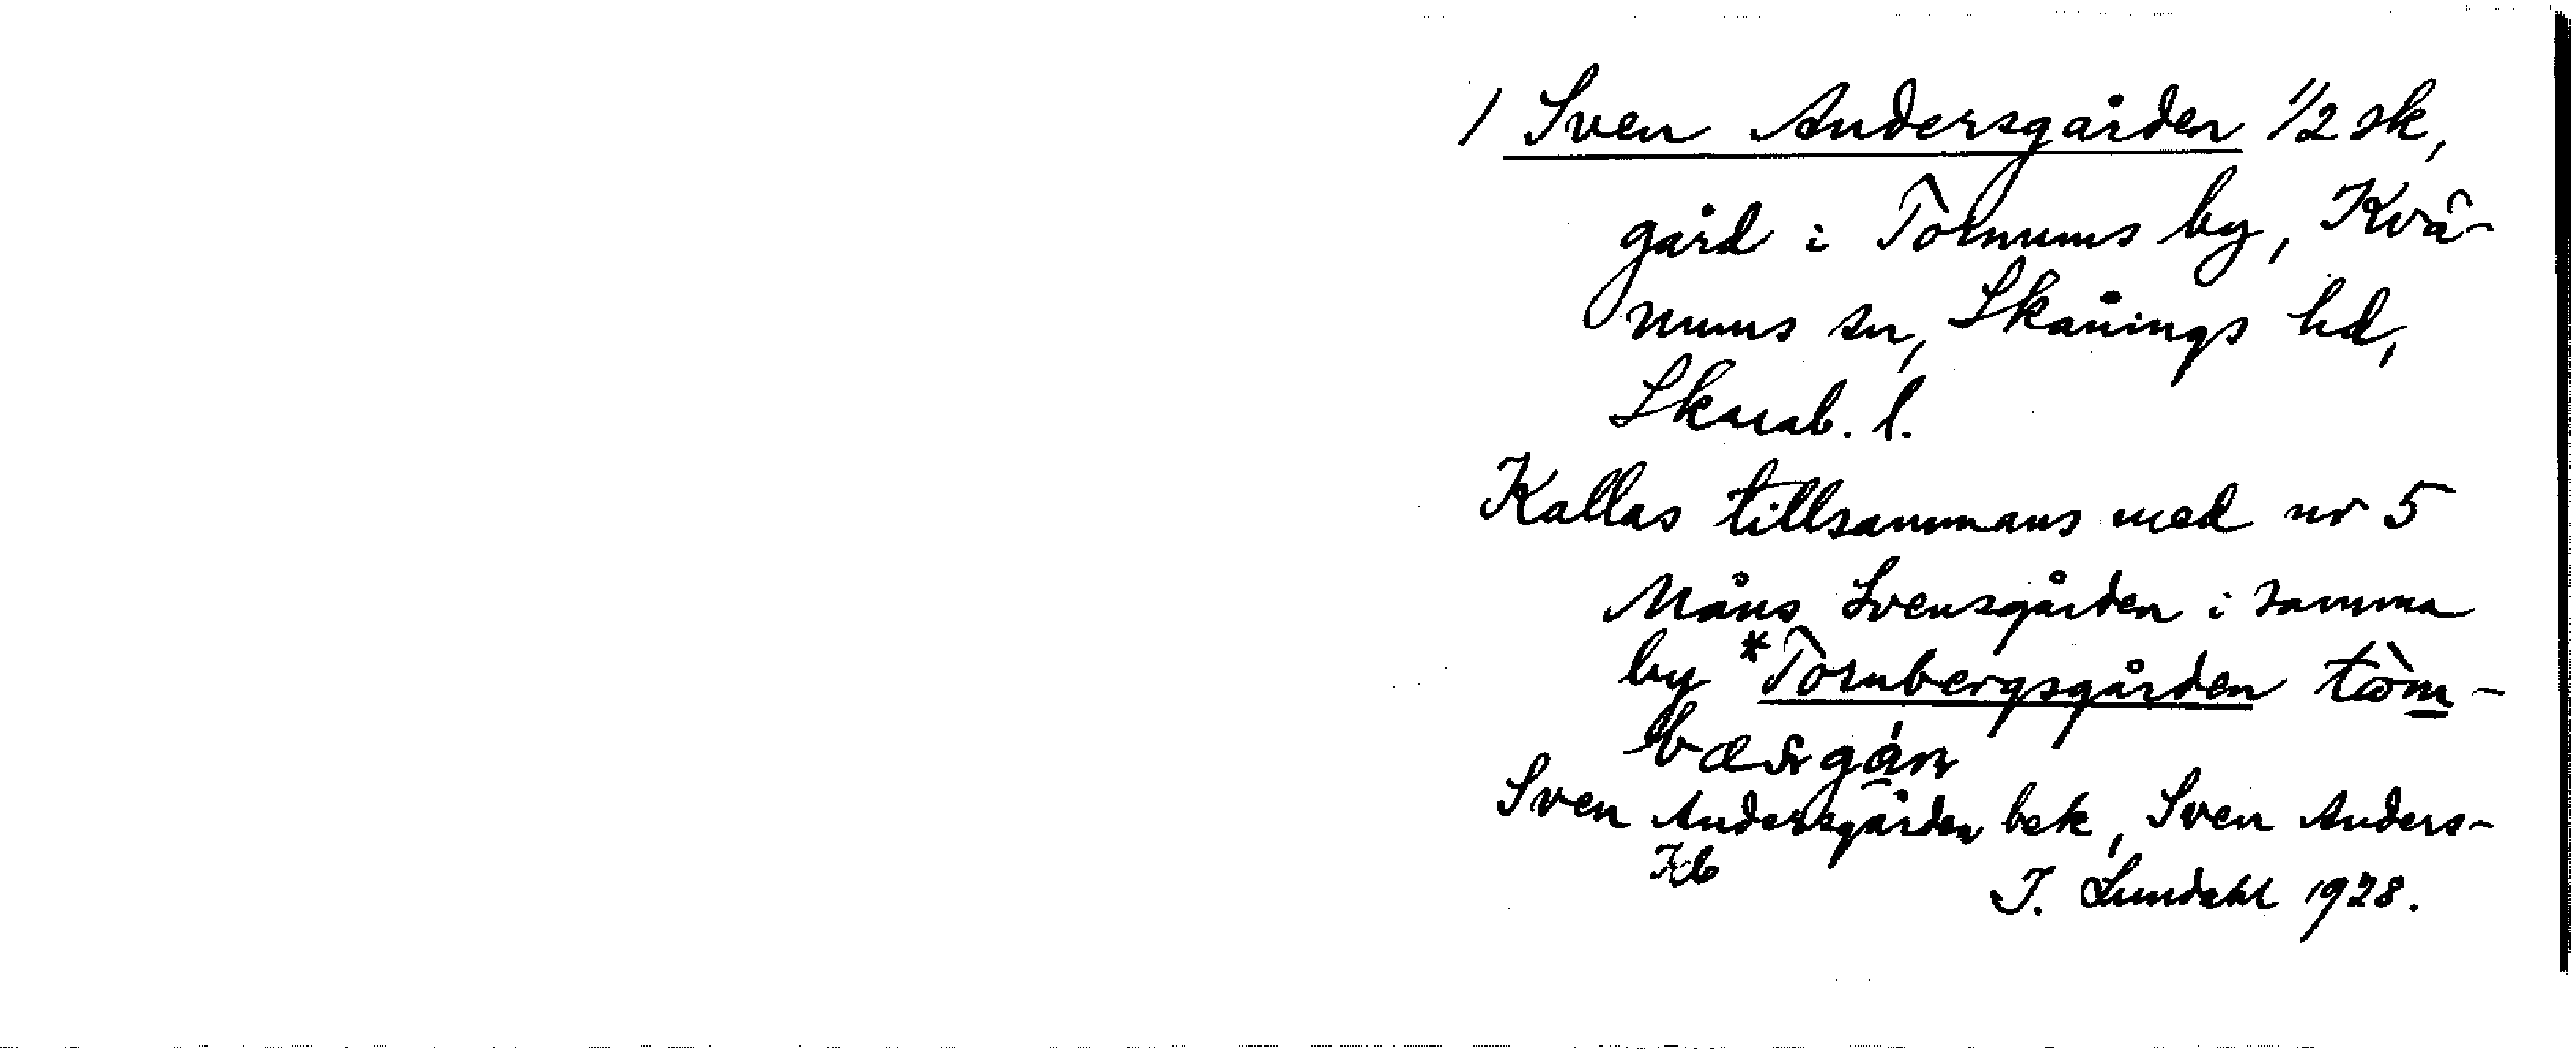 1 Sven Andersgården 1/2 sk,
gård i Tornums by, Kvä-
nums sn, Skånings hd,
Skarab. l.
Kallas tillsammans med nr 5
Måns Svensgården i samma
by *Tornbergsgården
Sven Andersgården bek, Sven Anders-
I. Lundahl 1928.